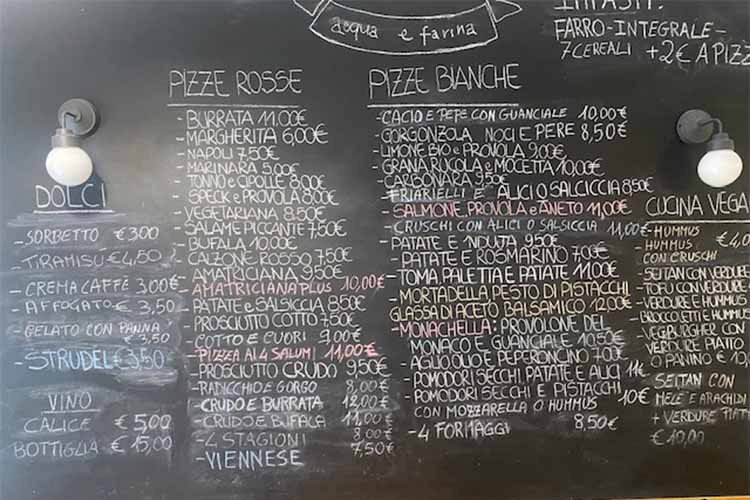 acqua e farina
IMPASTI:
FARRO-INTEGRALE-
7 CEREALI +2€ A PIZZ
DOLCI
-SORBETTO €3,00
-TIRAMISU €4,50
-CREMA CAFFÈ 3,00€
-AFFOGATO €3,50
-GELATO CON PANNA €3,50
-STRUDEL €3,50
VINO
CALICE €5,00
BOTTIGLIA €15,00
PIZZE ROSSE
-BURRATA 11,00€
-MARGHERITA 6,00€
-NAPOLI 7,50€
-MARINARA 5,00€
-TONNO e CIPOLLE 8,00€
-SPECK e PROVOLA 8,00€
-VEGETARIANA 8,50€
-SALAME PICCANTE 7,50€
-BUFALA 10,00€
-CALZONE ROSSO 7,50€
-AMATRICIANA 9,50€
-AMATRICIANA PLUS 10,00€
-PATATE e SALSICCIA 8,50€
-PROSCIUTTO COTTO 7,50€
-COTTO E FUORI 9,00€
-PIZZA AI 4 SALUMI 11,00€
-PROSCIUTTO CRUDO 9,50€
-RADICCHIO e GORGO 8,00€
-CRUDO E BURRATA 12,00€
-CRUDO e BUFALA 11,00€
-4 STAGIONI 8,00€
-VIENNESE 7,50€
PIZZE BIANCHE
-CACIO E PEPE CON GUANCIALE 10,00€
-GORGONZOLA NOCI E PERE 8,50€
-LIMONE BIO e PROVOLA 9,00€
-GRANA RUCOLA e MOCETTA 10,00€
-CARBONARA 9,50€
-FRIARIELLI E ALICI O SALSICCIA 8,50€
-SALMONE, PROVOLA e ANETO 11,00€
-CRUSCHI CON ALICI O SALSICCIA 11,00€
-PATATE E 'NDUJA 9,50€
-PATATE E ROSMARINO 7,00€
-TOMA, PALETTA E PATATE 11,00€
-MORTADELLA, PESTO DI PISTACCHI
GLASSA DI ACETO BALSAMICO 12,00€
-MONACHELLA: PROVOLONE DEL
MONACO E GUANCIALE 10,50€
-AGLIO OLIO E PEPERONCINO 7,00€
-POMODORI SECCHI, PATATE E ALICI 11€
-POMODORI SECCHI E PISTACCHI
CON MOZZARELLA O HUMMUS 10€
-4 FORMAGGI 8,50€
CUCINA VEGA
-HUMMUS €4,0
-HUMMUS
CON CRUSCHI
SEITAN CON VERDURE
TOFU CON VERDURE
-VERDURE E HUMMUS
BROCCOLETTI E HUMMUS
VEGABURGHER CON
VERDURE PIATTO
O PANINO €10
SEITAN CON
MELE E ARACHIDI
+ VERDURE PIATT
€10,00